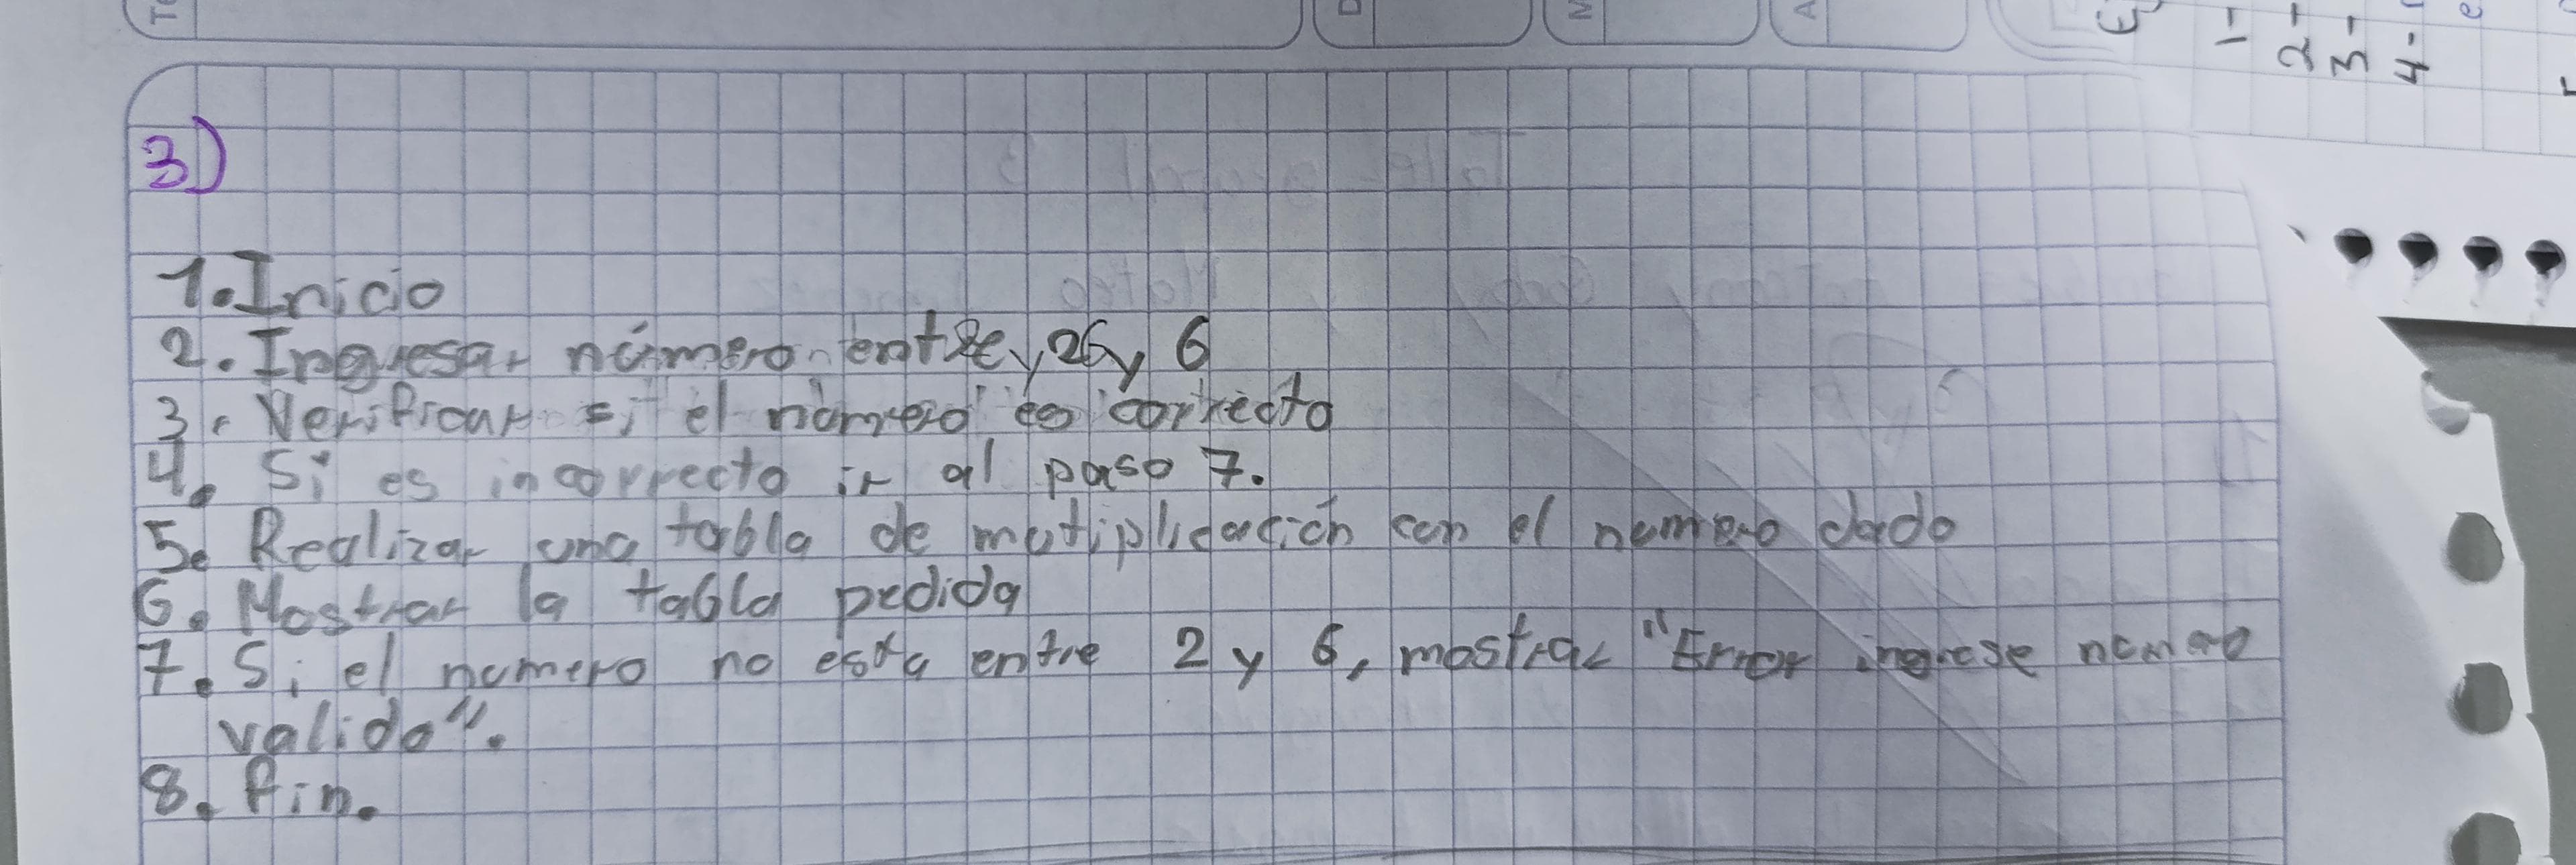 3)
1. Inicio
2. Ingresar número entre 2 y 6
3. Verificar si el número es correcto
4. Si es incorrecto ir al paso 7.
5. Realizar una tabla de mutiplicación con el numero dado
6. Mostrar la tabla pedida
7. Si el numero no esta entre 2 y 6, mostrar "Error ingrese numero
valido".
8. fin.
1-
2-
3-
4-